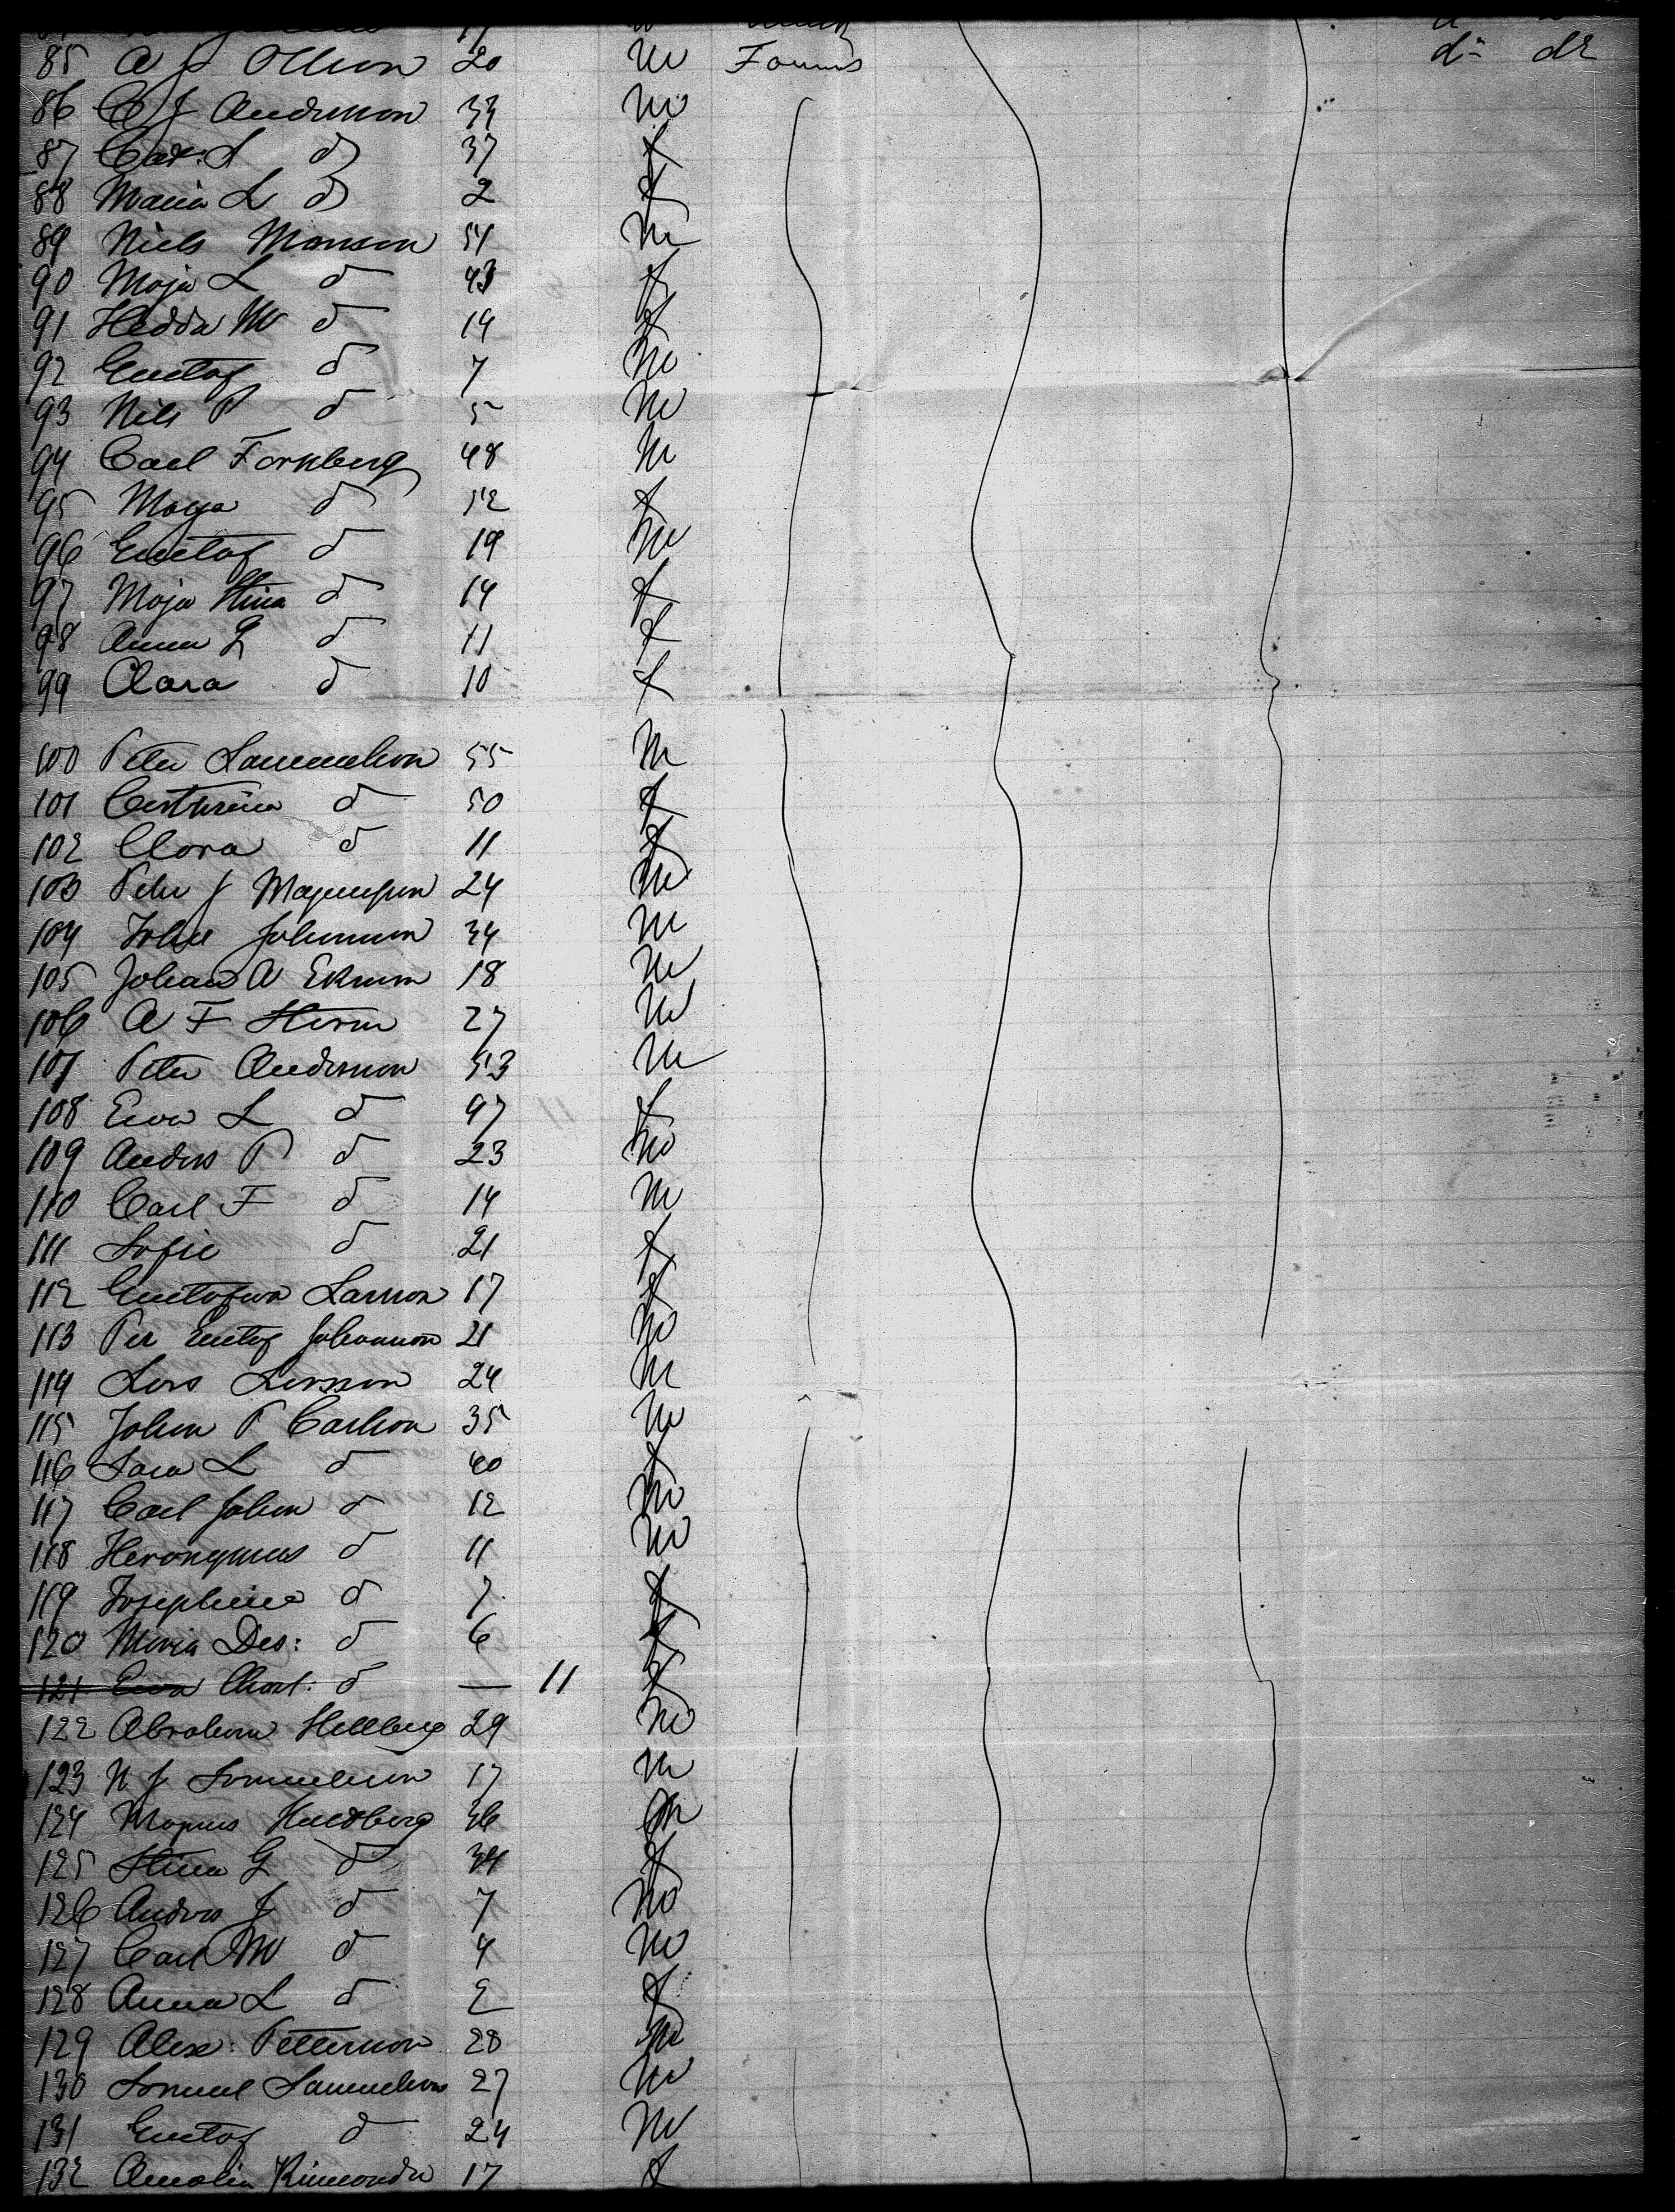 85 A J Olleson 20 m Farmer do do
86 C J Anderson 33 m
87 Cat: L do 37 f
88 Maria L do 2 f
89 Niels Monson 54 m
90 Moja L do 43 f
91 Hedda M do 14 f
92 Gustaf do 7 m
93 Nils P do 5 m
94 Carl Forsberg 48 m
95 Maya do 52 f
96 Gustaf do 19 m
97 Moja Stina do 14 f
98 Anna G do 11 f
99 Clara do 10 f
100 Peter Sammelson 55 m
101 Cathrina do 50 f
102 Clara do 11 f
103 Peter J Magnuson 24 m
104 Johan 34 m
105 Johan A Ekman 18 m
106 A F Strom 27 m
107 Peter Anderson 53 m
108 Eva L do 47 f
109 Anders P do 23 m
110 Carl F do 14 m
111 Sofie do 21 f
112 Gustafva Larson 17 f
113 Per Gustaf Johanson 21 m
114 Lars Larsson 24 m
115 Johan P Carlson 35 m
116 Sara L do 40 f
117 Carl Johan do 12 m
118 Heronymus do 11 m
119 Josephina do 7 f
120 Maria Des: do 6 f
121 Eva Charl: do — 11 f
122 Abraham Hellberg 29 m
123 N J Samuelson 17 m
124 Magnus 36 m
125 Stina G do 34 f
126 Anders J do 7 m
127 Carl M do 4 m
128 Anna L do 2 f
129 Alex: Petterson 28 m
130 Samuel Samuelson 27 m
131 Gustaf do 24 m
132 Amalia 17 f